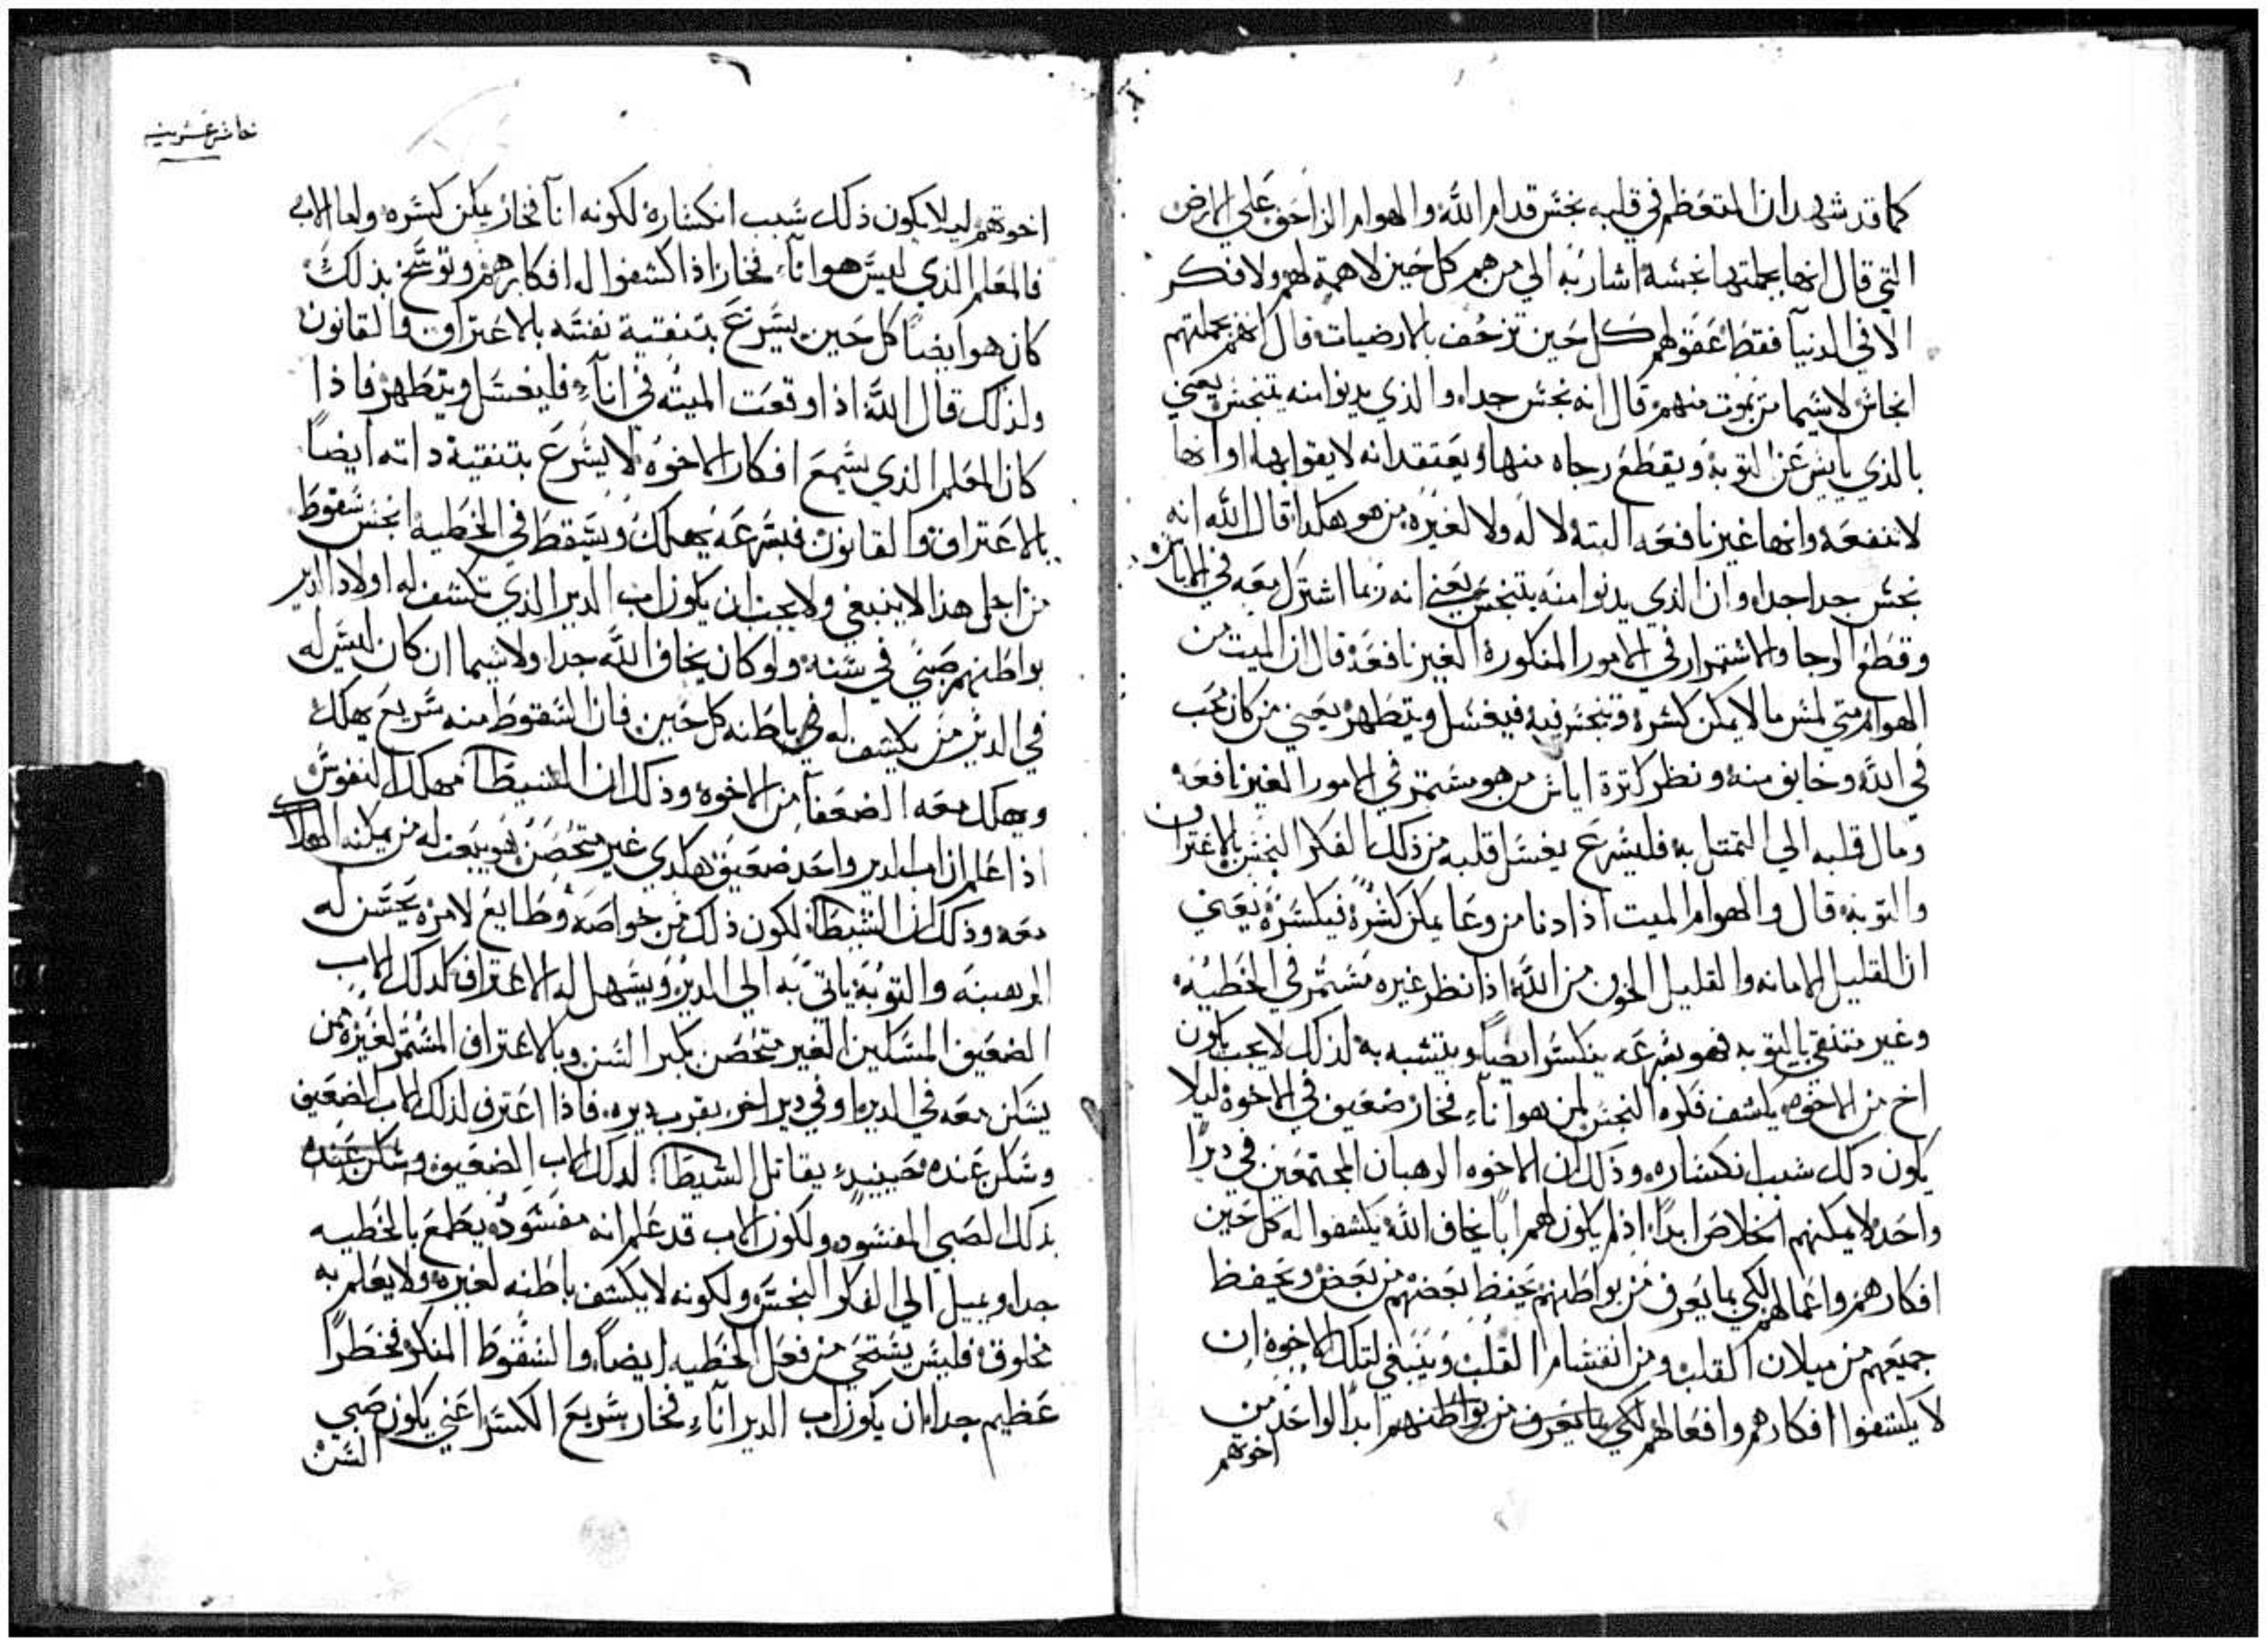 كما قد شهد ان المتعظم في قلبه نجس قدام الله والهوام الزاحف على الارض
التي قال انها بجملتها نجسة اشار به الي من هم كل حين لا همة لهم ولا فكر
الا في الدنيا فقط عقولهم كل حين تزحف بالارضيات قال انهم بجملتهم
انجاس لاسيما من يموت منهم قال انه نجس جدا والذي يدنوا منه يتنجس يعني
بالذي يايس عن التوبة ويقطع رجاه منها ويعتقد انه لا يقوا بها او انها
لا تنفعه وانها غير نافعه البتة لا له ولا لغيره من هو هكدا قال الله انه
نجس جدا جدا وان الذي يدنوا منه يتنجس يعني انه ربما اشترك معه في الاياس
وقطع الرجا والاستمرار في الامور المنكورة الغير نافعة قال ان الميت من
الهوام متي لمس ما لا يمكن كسره وتنجس فيه فيغسل ويتطهر يعني من كان محب
في الله وخايف منه ونظر كترة اياس من هو مستمر في الامور الغير نافعه
ومال قلبه الي التمتل به فليسرع يغسل قلبه من ذلك الفكر النجس بالاعتراف
والتوبه قال والهوام الميت اذا دنا من وعا يمكن كسره فيكسره يعني
ان القليل الامانه والقليل الخوف من الله اذا نظر غيره مستمر في الخطيه
وغير متنقي بالتوبه فهو بسرعه ينكسر ايضا ويتشبه به لذلك لا يجب يكون
اخ من الاخوه يكشف فكره النجس لمن هو انآء فخار ضعيف في الاخوة ليلا
يكون دلك سبب انكساره وذلك ان الاخوه الرهبان المجتمعين في ديرا
واحد لا يمكنهم الخلاص ابدا اذ لم يكون لهم ابا يخاف الله يكشفوا له كل حين
افكارهم واعمالهم لكي بما يعرف من بواطنهم يحفظ بعضهم من بعض ويحفظ
جميعهم من ميلان القلب ومن انقسام القلب وينبغي لتلك الاخوة ان
لا يكشفوا افكارهم وافعالهم لكي بما يعرف من بواطنهم ابدا لواحد من
اخوتهم
اخوتهم ليلا يكون ذلك سبب انكساره لكونه انا فخار يمكن كسره واما الاب
فالمعلم الذي ليس هو انآء فخار اذا كشفوا له افكارهم وتوسخ بذلك
كان هو ايضا كل حين يسرع بتنقية نفسه بالاعتراف والقانون
ولذلك قال الله اذا وقعت الميته في انآء فليغسل ويتطهر فاذا
كان المعلم الذي يسمع افكار الاخوه لا يسرع بتنقية داته ايضا
بالاعتراف والقانون فبسرعه يهلك ويسقط في الخطيه انجس سقوط
من اجل هذا لا ينبغي ولا يجب ان يكون اب الدير الذي تكشف له اولاد الدير
بواطنهم صبي في سنه ولو كان يخاف الله جدا ولاسيما ان كان ليس له
في الدير من يكشف له في باطنه كل حين فان السقوط منه سريع يهلك
ويهلك معه الضعفا من الاخوة وذلك ان الشيطان مهلك النفوس
اذا علم ان اب الدير واحد ضعيف هكدي غير متحصن فهو يبعت له من يمكنه الهلاك
معه وذلك ان الشيطان لكون ذلك من خواصه وطايع لامره يحسن له
الرهبنه والتوبة ياتي به الي الدير ويسهل له الاعتراف لدلك الاب
الضعيف المسكين الغير متحصن بكبر السن وبالاعتراف المستمر لغيره ممن
يسكن معه في الدير او في دير اخر بقرب ديره فاذا اعترف لذلك الاب الضعيف
وسكن عنده فحينيد يقاتل الشيطان لدلك الاب الضعيف وسكن عنده
بذلك الصبي المفسود ولكون الاب قد علم انه مفسود يطمع بالخطيه
جدا ويميل الي الفكر النجس ولكونه لا يكشف باطنه لغيره ولا يعلم به
مخلوق فليس يستحي من فعل الخطيه ايضا والسقوط المنكر فخطرا
عظيم جدا ان يكون اب الدير انآء فخار سريع الكسر اعني يكون صبي
السن